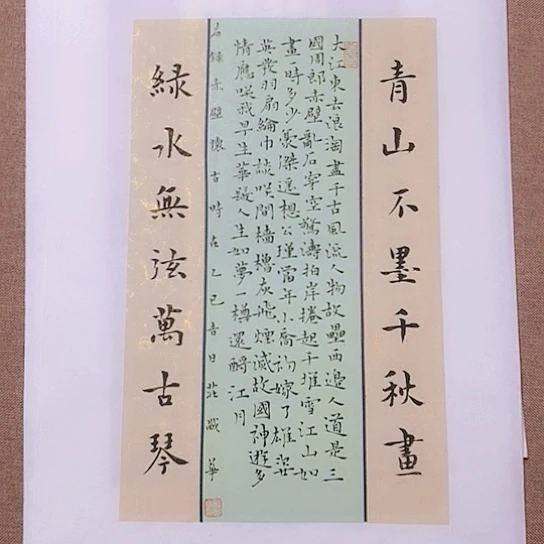 青山不墨千秋畫
大江東去浪淘盡千古風流人物故壘西邊人道是三
國周郎赤壁亂石穿空驚濤拍岸捲起千堆雪江山如
畫一時多少豪傑遙想公瑾當年小喬初嫁了雄姿
英發羽扇綸巾談咲間檣櫓灰飛煙滅故國神遊多
情應咲我早生華髮人生如夢一樽還酹江月
右錄赤壁懷古時在乙巳春日莊 華
綠水無弦萬古琴